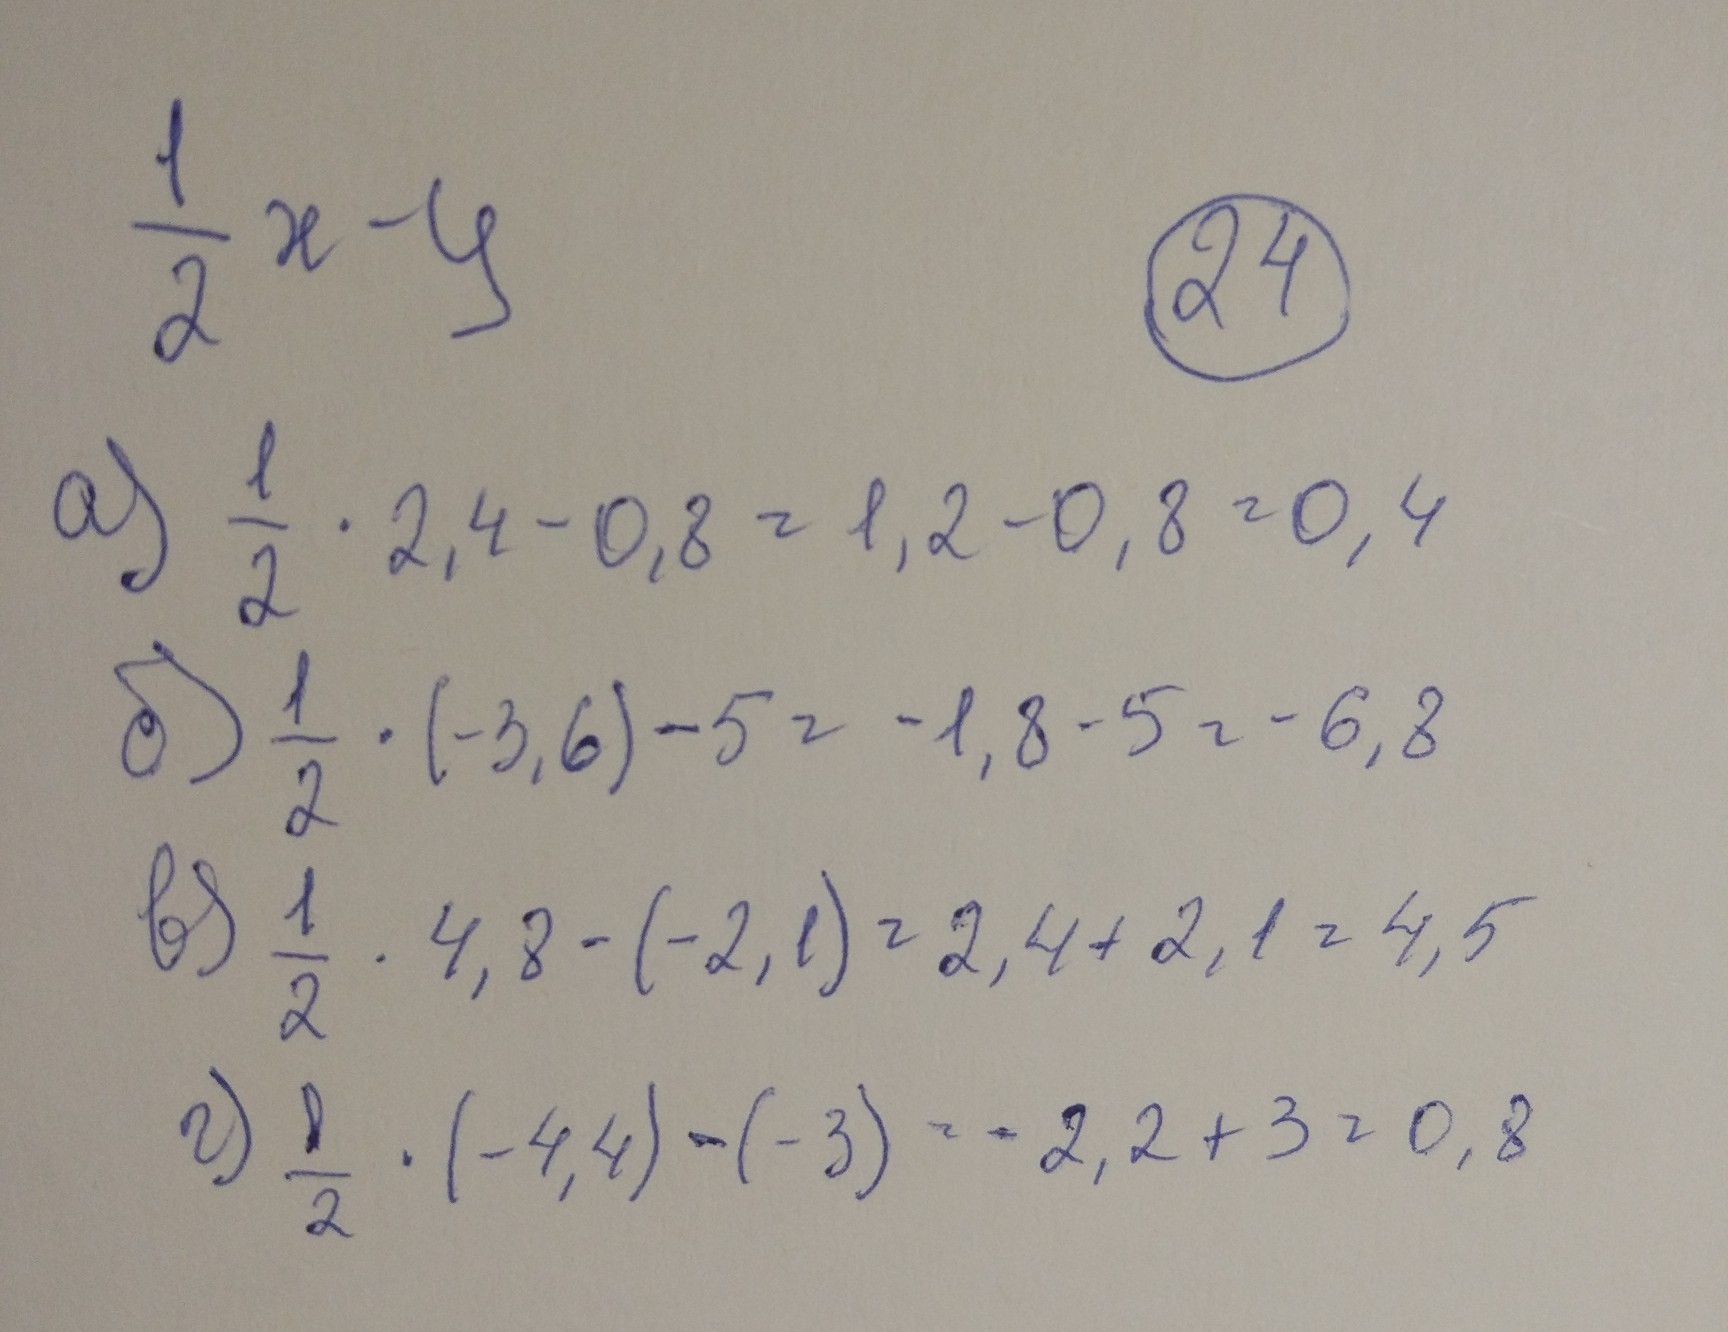 1/2 x - y
24
а) 1/2 · 2,4 - 0,8 = 1,2 - 0,8 = 0,4
б) 1/2 · (-3,6) - 5 = -1,8 - 5 = -6,8
в) 1/2 · 4,8 - (-2,1) = 2,4 + 2,1 = 4,5
г) 1/2 · (-4,4) - (-3) = -2,2 + 3 = 0,8